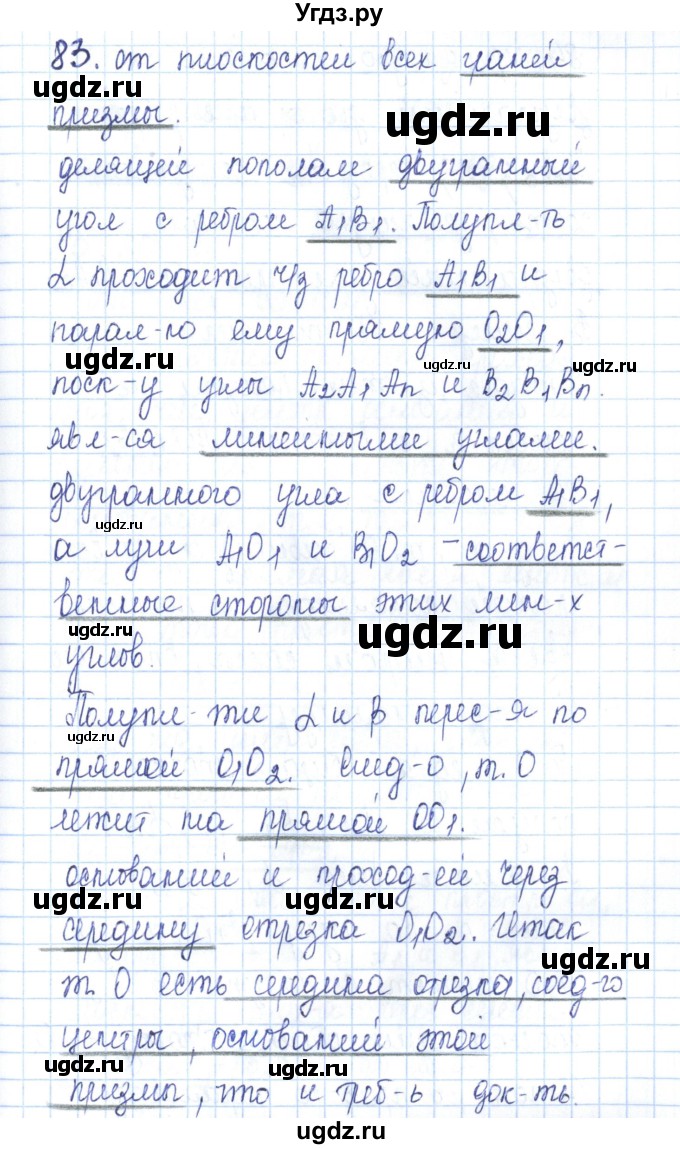 Угдз.ру
83. от плоскостей всех граней
ugdz.ru
ugdz.ru
призмы.
ugdz.ru
делящей пополам двугранный
угол с ребром A₁B₁. Полупл-ть
α проходит ч/з ребро A₁B₁ и
парал-ю ему прямую O₂O₁,
ugdz.ru
ugdz.ru
поск-у углы A₂A₁An и B₂B₁Bn.
явл-ся линейными углами.
двугранного угла с ребром A₁B₁,
ugdz.ru
а лучи A₁O₁ и B₁O₂ – соответст-
венные стороны этих лин-х
ugdz.ru
ugdz.ru
углов.
Полупл-ти α и β перес-я по
ugdz.ru
прямой O₁O₂. След-о, т. O
лежит на прямой OO₁.
оснований и проход-ей через
ugdz.ru
ugdz.ru
середину отрезка O₁O₂. Итак
ugdz.ru
т. O есть середина отрезка, соед-го
центры, оснований этой
ugdz.ru
ugdz.ru
призмы, что и треб-ь док-ть.
ugdz.ru